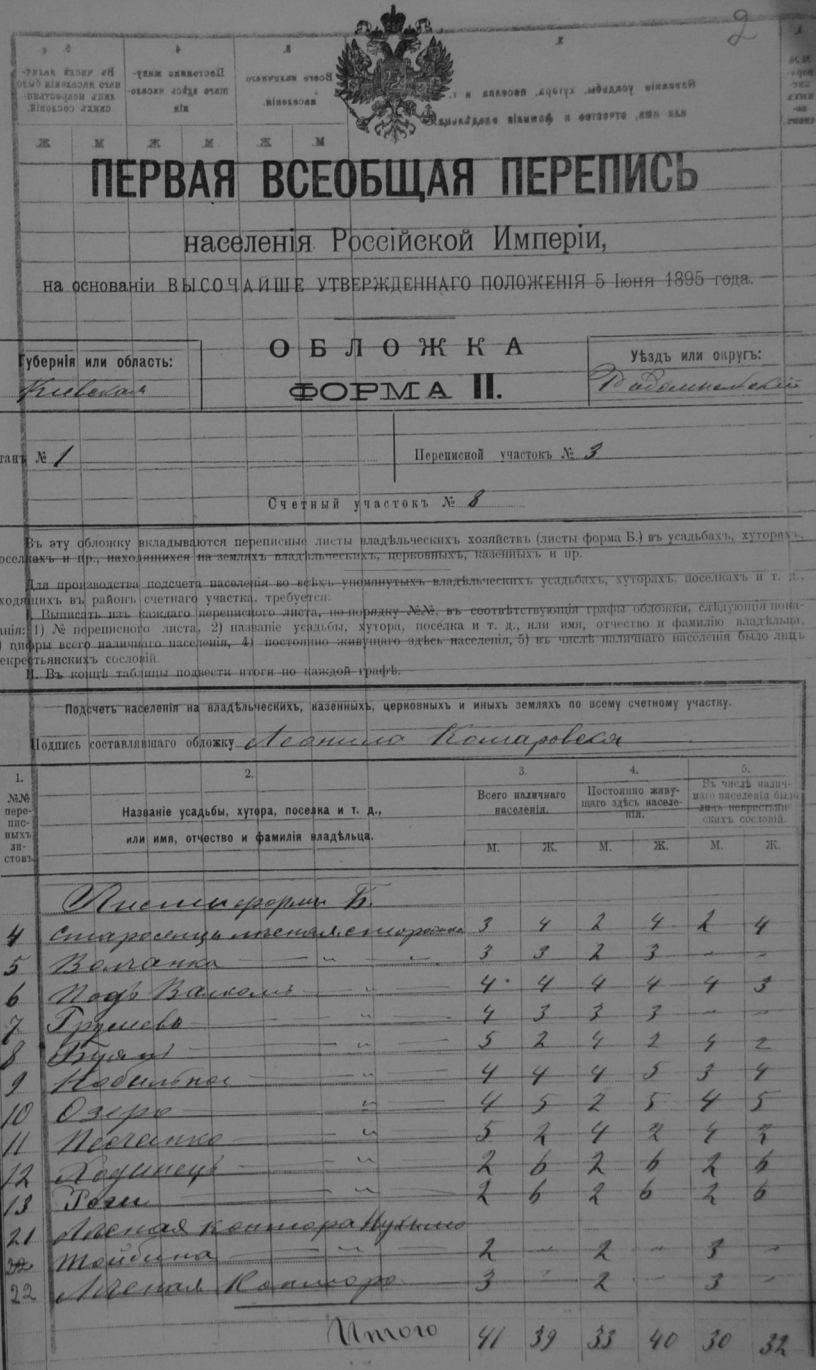 2
ПЕРВАЯ ВСЕОБЩАЯ ПЕРЕПИСЬ
населенія Россійской Имперіи,
на основаніи ВЫСОЧАЙШЕ УТВЕРЖДЕННАГО ПОЛОЖЕНІЯ 5 Іюня 1895 года.
ОБЛОЖКА
ФОРМА II.
Губернія или область:
Кіевская
Уѣздъ или округъ:
Радомысльскій
танъ № 1
Переписной участокъ № 3
Счетный участокъ № 8
Въ эту обложку вкладываются переписные листы владѣльческихъ хозяйствъ (листы форма Б.) въ усадьбахъ, хуторахъ,
оселкахъ и пр., находящихся на земляхъ владѣльческихъ, церковныхъ, казенныхъ и пр.
Для производства подсчета населенія во всѣхъ упомянутыхъ владѣльческихъ усадьбахъ, хуторахъ, поселкахъ и т. д.,
ходящихъ въ районъ счетнаго участка, требуется:
I. Выписать изъ каждаго переписного листа, по порядку №№, въ соотвѣтствующія графы обложки, слѣдующія пока-
занія: 1) № переписного листа, 2) названіе усадьбы, хутора, поселка и т. д., или имя, отчество и фамилію владѣльца,
) цифры всего наличнаго населенія, 4) постоянно живущаго здѣсь населенія, 5) въ числѣ наличнаго населенія было лицъ
екрестьянскихъ сословій.
II. Въ концѣ таблицы подвести итоги по каждой графѣ.
Подсчетъ населенія на владѣльческихъ, казенныхъ, церковныхъ и иныхъ земляхъ по всему счетному участку.
Подпись составлявшаго обложку Леонила Комаровская
1. 2. 3. 4. 5.
№№ переписныхъ листовъ
Названіе усадьбы, хутора, поселка и т. д.,
или имя, отчество и фамилія владѣльца.
Всего наличнаго населенія.
Постоянно живущаго здѣсь населенія.
Въ числѣ наличнаго населенія было лицъ некрестьянскихъ сословій.
М. Ж. М. Ж. М. Ж.
Листы формы Б.
4 Староселицы лѣсная сторожка 3 4 2 4 2 4
5 Волчанка — " — " 3 3 2 3 - -
6 Подъ Валкомъ — " 4 4 4 4 4 3
7 Грушевъ — " 4 3 3 3 - -
8 — " 5 2 4 2 4 2
9 Кобильное — " 4 4 4 5 3 4
10 Озеро — " 4 5 2 5 4 5
11 Песчанка — " 5 2 4 2 4 2
12 Ходинецъ — " 2 6 2 6 2 6
13 — " 2 6 2 6 2 6
21 Лѣсная контора
Тойбина — " — 2 " 2 - 3 -
22 Лѣсная Контора 3 - 2 - 3 -
Итого 41 39 33 40 30 32